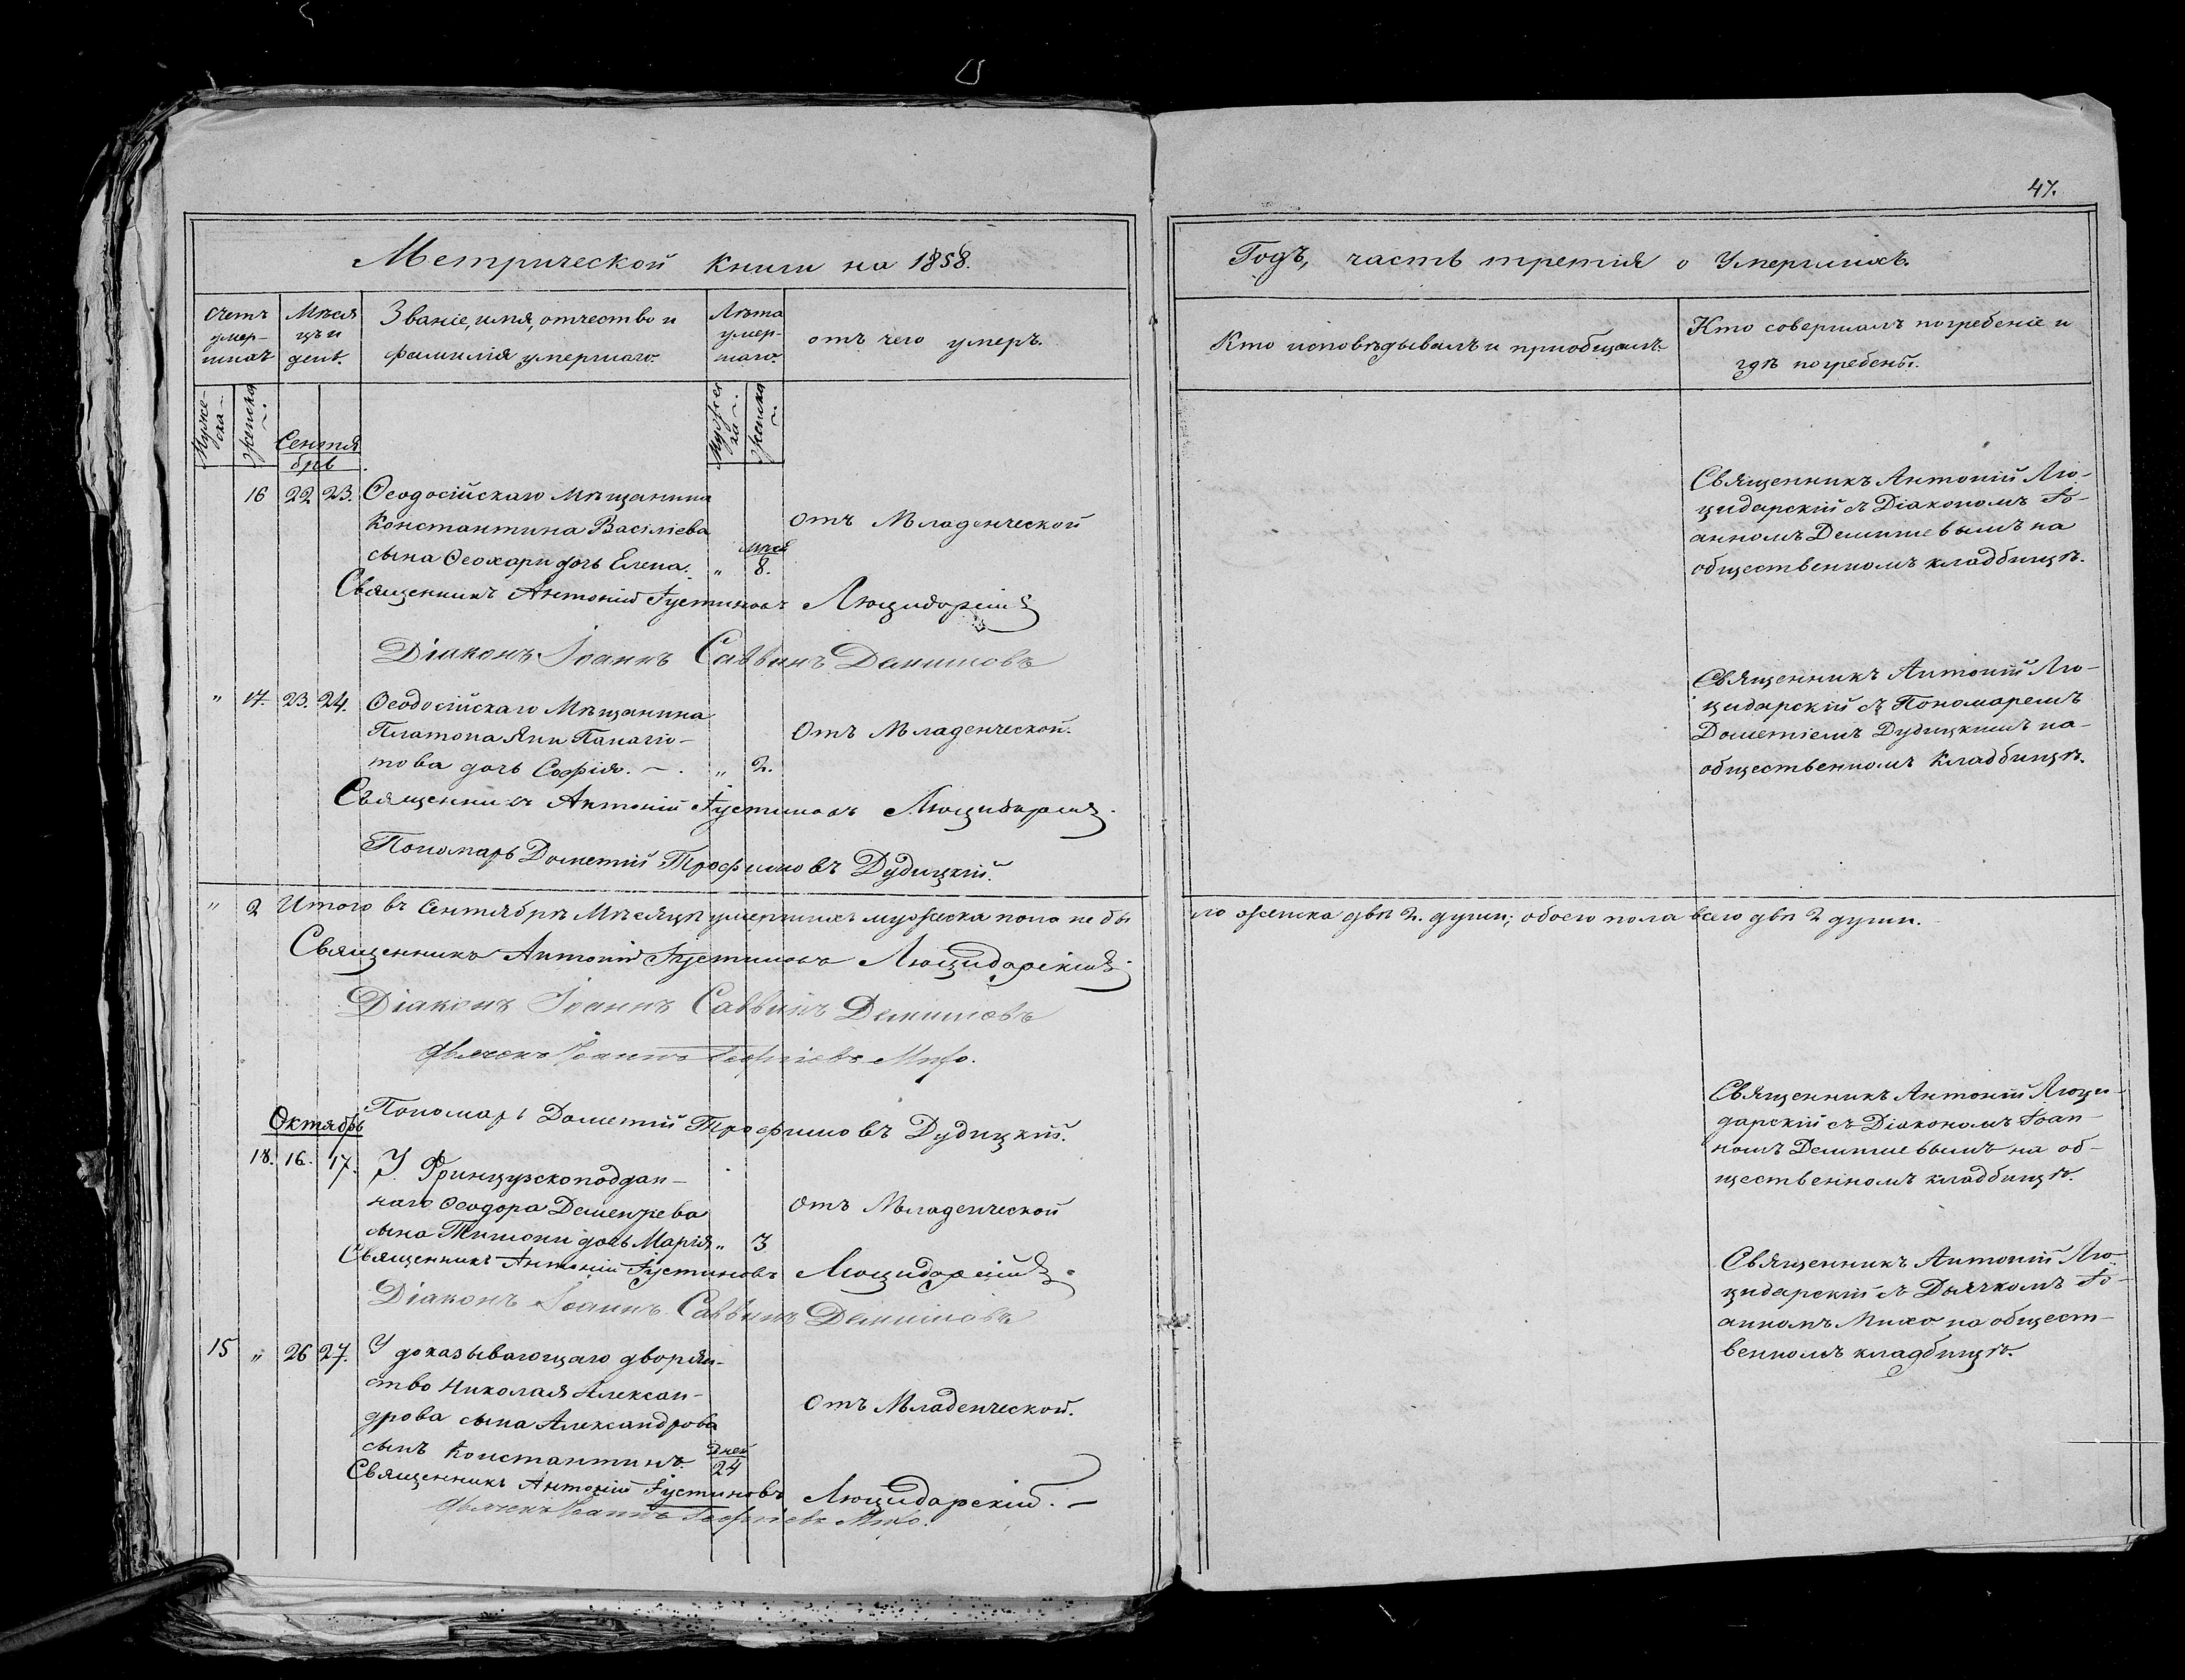 47.
Метрической книги на 1858.
Годъ, часть третія о Умершихъ.
Счетъ умер-шихъ
Мѣся цъ и день.
Званіе, имя, отчество и
фамилія умершаго.
Лѣта умер-шаго.
отъ чего умеръ.
Кто исповѣдывалъ и приобщалъ.
Кто совершалъ погребеніе и
гдѣ погребены.
Муже-ска
женска
Сентя
брь
Мужес ка
женска
16 22 23. Ѳеодосійскаго Мѣщанина
Константина Васіліева
сына Ѳеохари дочь Елена. " Мѣс. 8.
отъ Младенческой
Священникъ Антоній Лю-
цидарскій съ Діакономъ Іо-
анномъ Демишевымъ на
общественномъ кладбищѣ.
Священникъ Антоній Іустиновъ Люцидарскій
Діаконъ Іоаннъ Саввинъ Демишовъ
" 17. 23. 24. Ѳеодосійскаго Мѣщанина
Платона Яни Панагіо-
това дочь Софія. " 2.
Отъ Младенческой.
Священникъ Антоній Лю-
цидарскій съ Пономаремъ
Дометіемъ Дудицкимъ на
общественномъ Кладбищѣ.
Священникъ Антоній Іустиновъ Люцидарскій
Пономарь Дометій Трофимовъ Дудицкій.
" 2 Итого въ Сентябрѣ Мѣсяцѣ умершихъ мужеска пола не бы
ло женска двѣ 2. души; обоего пола всего двѣ 2 души.
Священникъ Антоній Іустиновъ Люцидарскій
Діаконъ Іоаннъ Саввинъ Демишовъ
Дьячекъ Іоаннъ Георгіевъ Михо.
Пономарь Дометій Трофимовъ Дудицкій.
Октябрь
18. 16. 17. У Французскоподдан-
наго Ѳеодора
сына дочь Марія " 3
отъ Младенческой
Священникъ Антоній Люци-
дарскій съ Діакономъ Іоан-
номъ Демишевымъ на об-
щественномъ кладбищѣ.
Священникъ Антоній Іустиновъ Люцидарскій
Діаконъ Іоаннъ Саввинъ Демишовъ
15 " 26 27. У доказывающаго дворян-
ство Николая Алексан-
дрова сына Александрова
сынъ Константинъ. Дней 24
Отъ Младенческой.
Священникъ Антоній Лю-
цидарскій съ Дьячкомъ Іо-
анномъ Михо на общест-
венномъ кладбищѣ.
Священникъ Антоній Іустиновъ Люцидарскій.
Дьячекъ Іоаннъ Георгіевъ Михо.